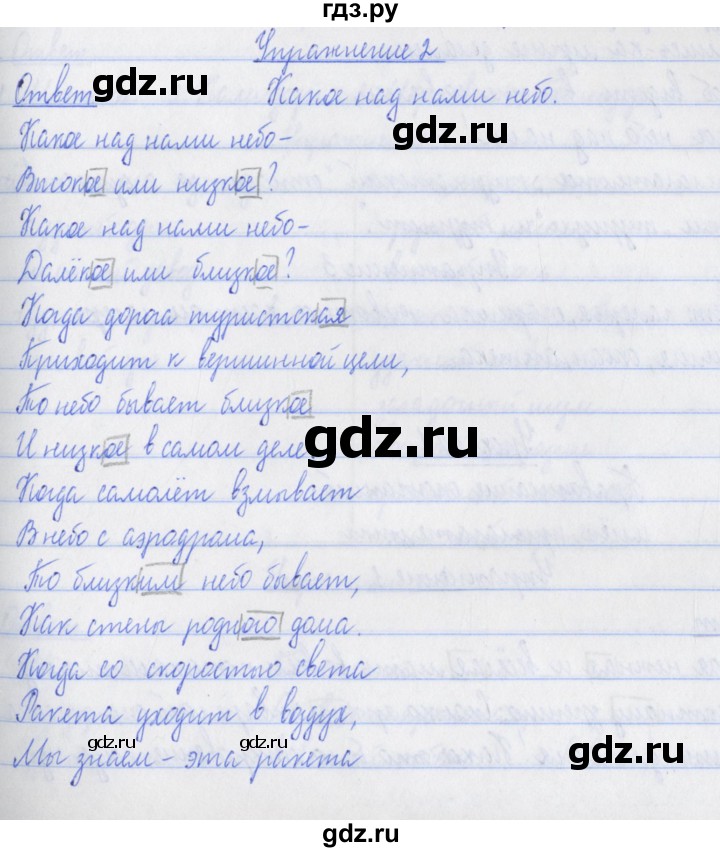 гдз.ру
Упражнение 2
Ответ Какое над нами небо.
Какое над нами небо-
Высокое или низкое?
Какое над нами небо-
Далёкое или близкое?
Когда дорога туристская
Приходит к вершинной цели,
То небо бывает близкое
И низкое в самом деле.
Когда самолёт взмывает
В небо с аэродрома,
То близким небо бывает,
Как стены родного дома.
Когда со скоростью света
Ракета уходит в воздух,
Мы знаем - эта ракета
gdz.ru
gdz.ru
gdz.ru
gdz.ru
gdz.ru
gdz.ru
gdz.ru
gdz.ru
gdz.ru